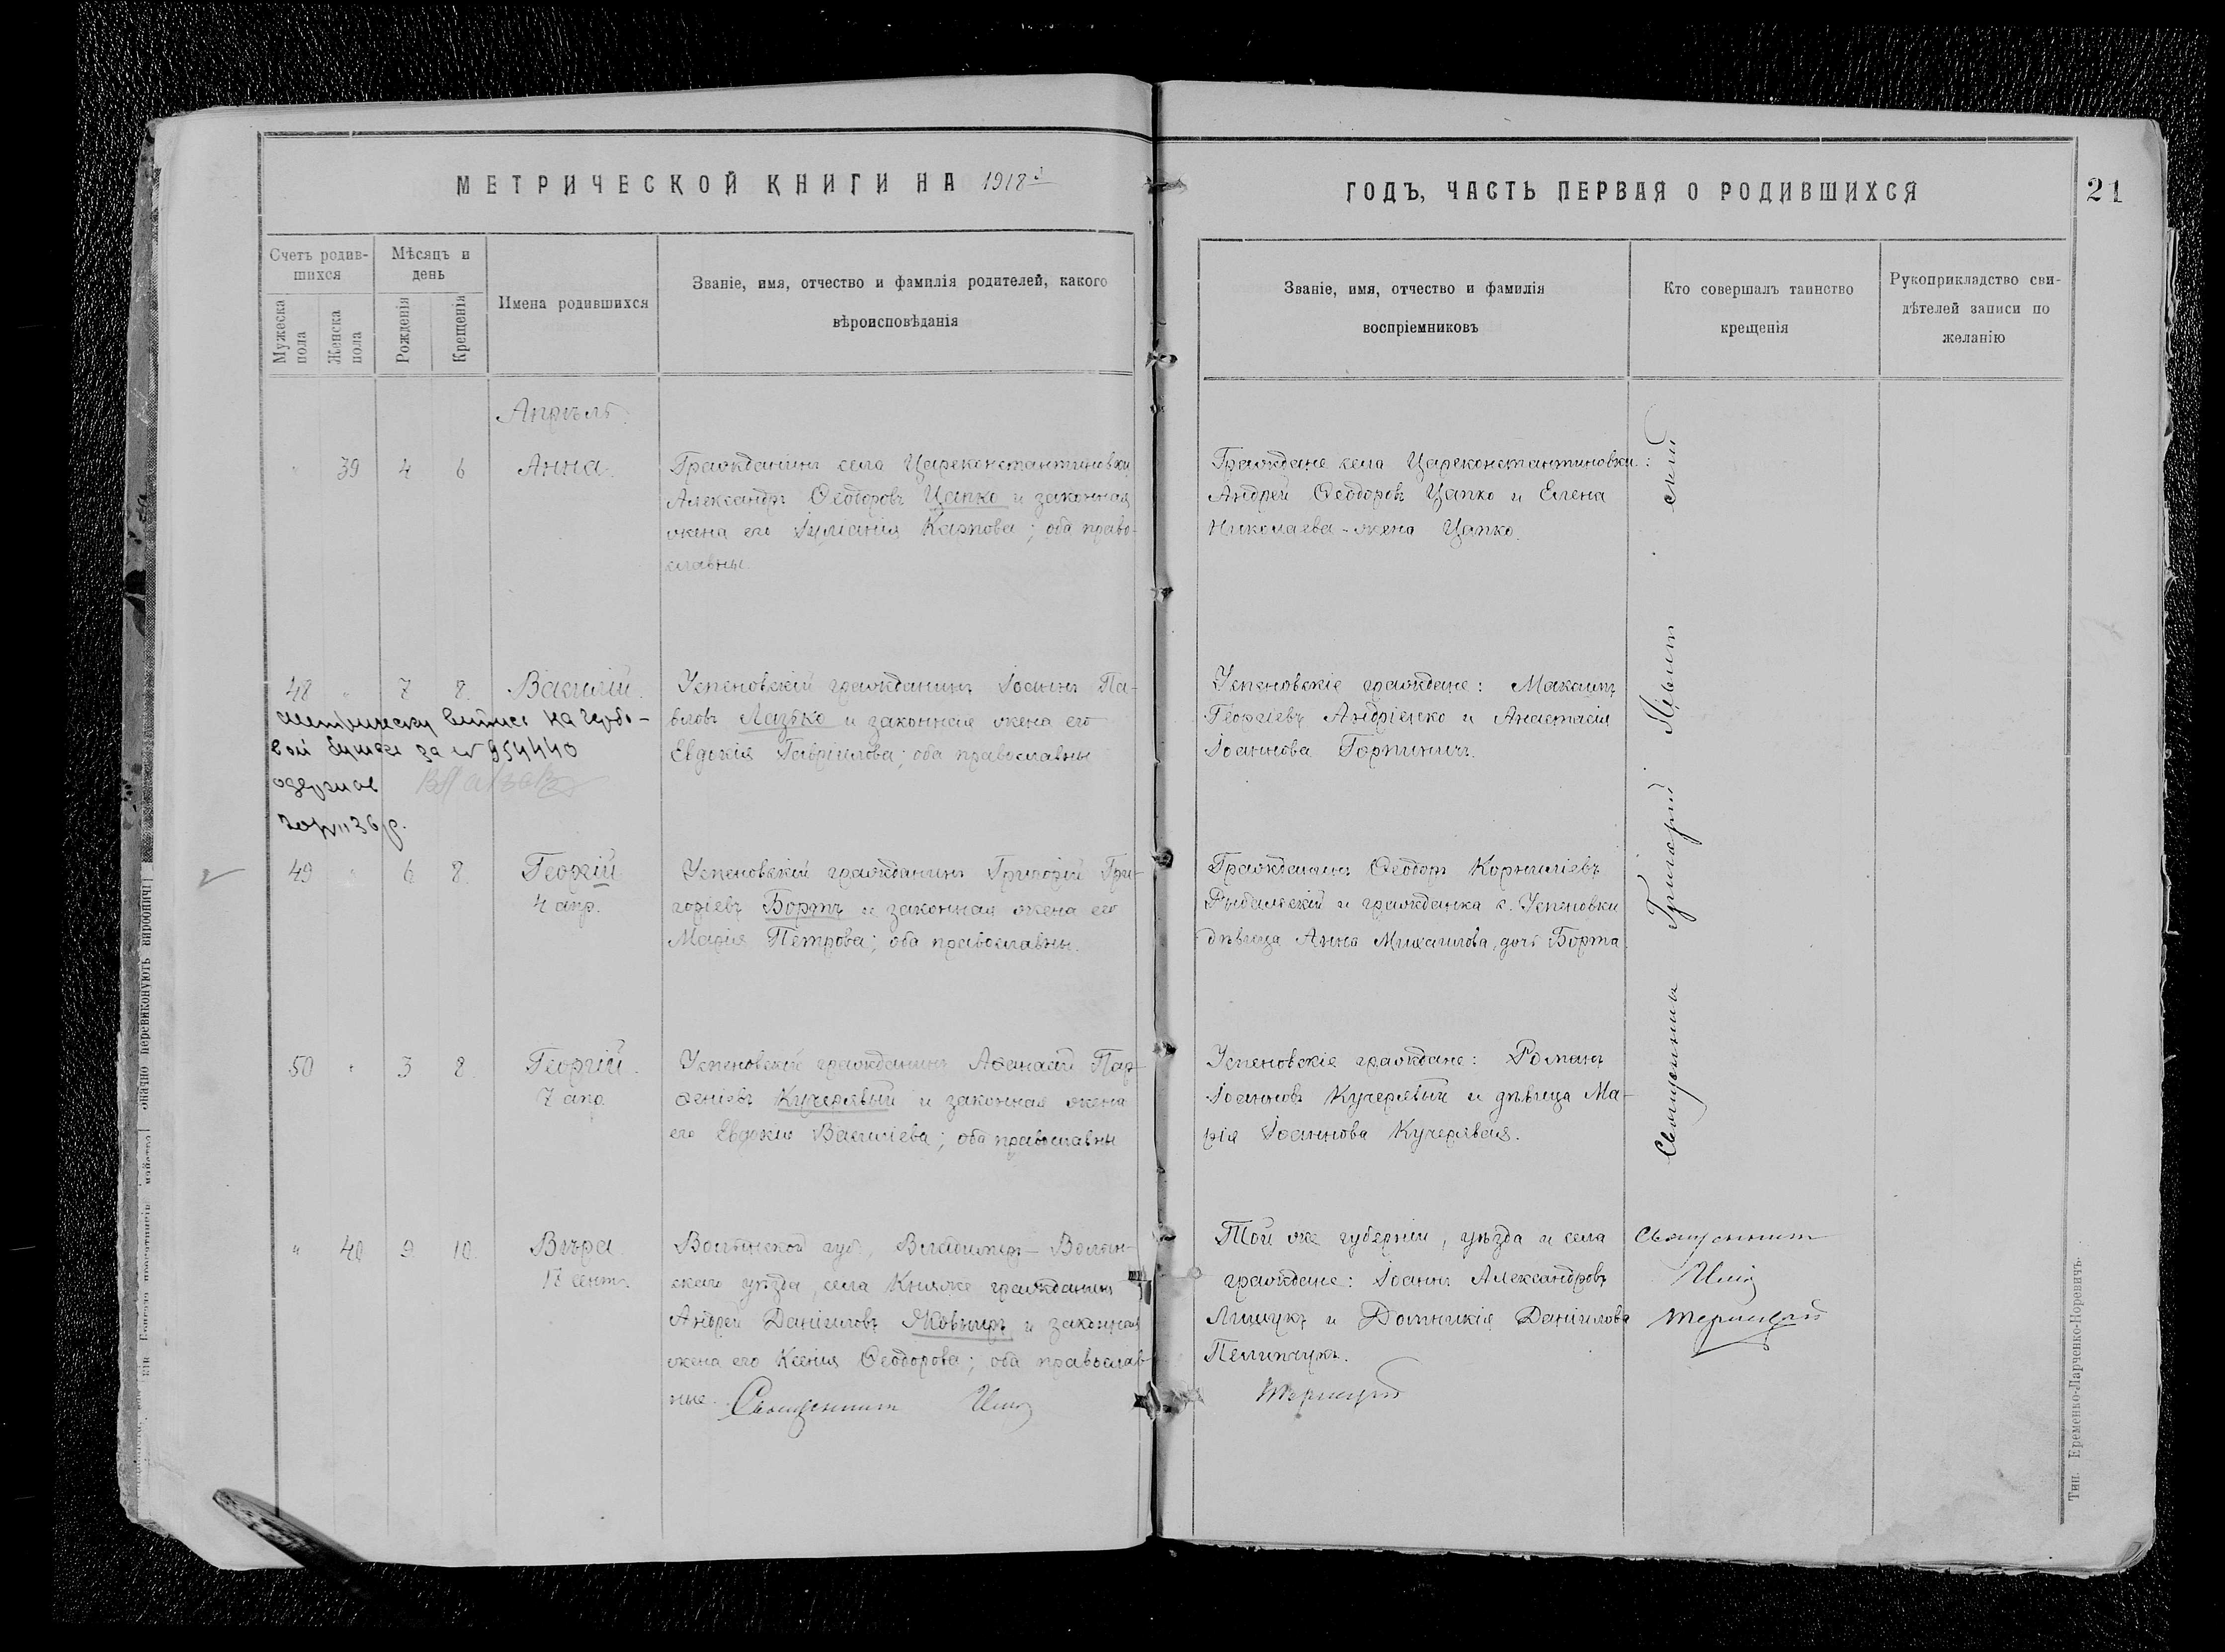 МЕТРИЧЕСКОЙ КНИГИ НА 1918 й
ГОДЪ, ЧАСТЬ ПЕРВАЯ О РОДИВШИХСЯ
21
Счетъ родив-
шихся
Мужеска
пола
Женска
пола
Мѣсяцъ и
день
Рожденія
Крещенія
Имена родившихся
Званіе, имя, отчество и фамилія родителей, какого
вѣроисповѣданія
Званіе, имя, отчество и фамилія
воспріемниковъ
Кто совершалъ таинство
крещенія
Рукоприкладство сви-
дѣтелей записи по
желанію
Апрѣль.
" 39 4 6 Анна.
Гражданинъ села Цареконстантиновки
Александръ Ѳеодоровъ Цапко и законная
жена его Іуліанія Карпова; оба право-
славны
Граждане села Цареконстантиновки:
Андрей Ѳеодоровъ Цапко и Елена
Николаева-жена Цапко.
48 " 7 8. Василій.
Успеновскій гражданинъ Іоаннъ Па-
вловъ Лазько и законная жена его
Евдокія Гавріилова; оба православны
Успеновскіе граждане: Максимъ
Георгіевъ Андріенко и Анастасія
Іоаннова Горпиничъ.
за № 954440
одержав
36 р.
49 " 6 8. Георгій
4 апр.
Успеновскій гражданинъ Григорій Гри-
горіевъ Бортъ и законная жена его
Марія Петрова; оба православны.
Гражданинъ Ѳеодоръ Корниліевъ
Рыбальскій и гражданка с. Успеновки
дѣвица Анна Михаилова, дочь Борта.
50 " 3 8. Георгій.
7 апр.
Успеновскій гражданинъ Аѳанасій Пар-
ѳеніевъ Кучерявый и законная жена
его Евдокія Василіева; оба православны
Успеновскіе граждане: Романъ
Іоанновъ Кучерявый и дѣвица Ма-
рія Іоаннова Кучерявая.
Священники Григорій
" 40 9 10. Вѣра
17 сент.
Волынской губ., Владиміръ-Волын-
скаго уѣзда, села Княже гражданинъ
Андрей Даніиловъ и законная
жена его Ксенія Ѳеодорова; оба православ-
ные.
Той же губерніи, уѣзда и села
граждане: Іоаннъ Александровъ
Лищукъ и Домникія Даніилова
Пелипчукъ.
Священникъ
Священникъ
Тип. Еременко-Ларченко-Норевичъ.